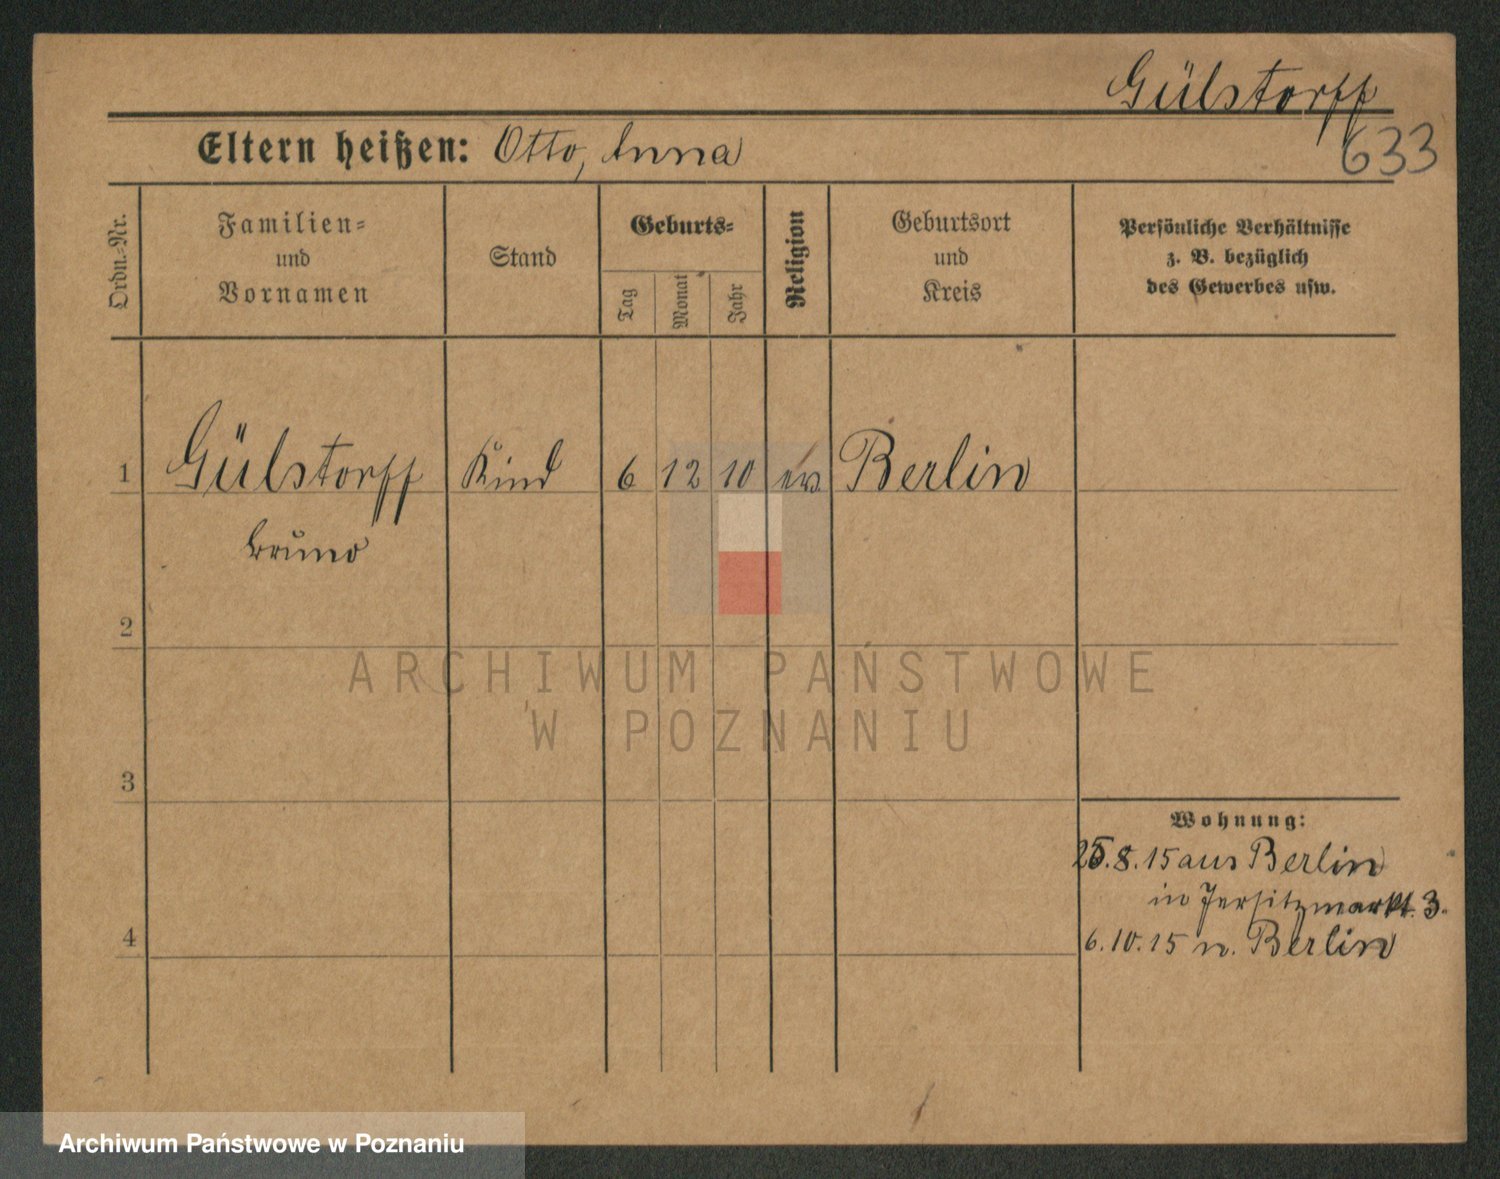 Gülstorff
633
Eltern heißen: Otto, Anna
Ordn.-Nr.
Familien-
und
Vornamen
Stand
Geburts-
Tag
Monat
Jahr
Religion
Geburtsort
und
Kreis
Persönliche Verhältnisse
z. B. bezüglich
des Gewerbes usw.
1 Gülstorff Kind 6 12 10 ev. Berlin
Bruno
2
ARCHIWUM PAŃSTWOWE
W POZNANIU
3
Wohnung:
25.8.15 aus Berlin
in Jersitzmarkt. 3.
4
6.10.15 n. Berlin
Archiwum Państwowe w Poznaniu